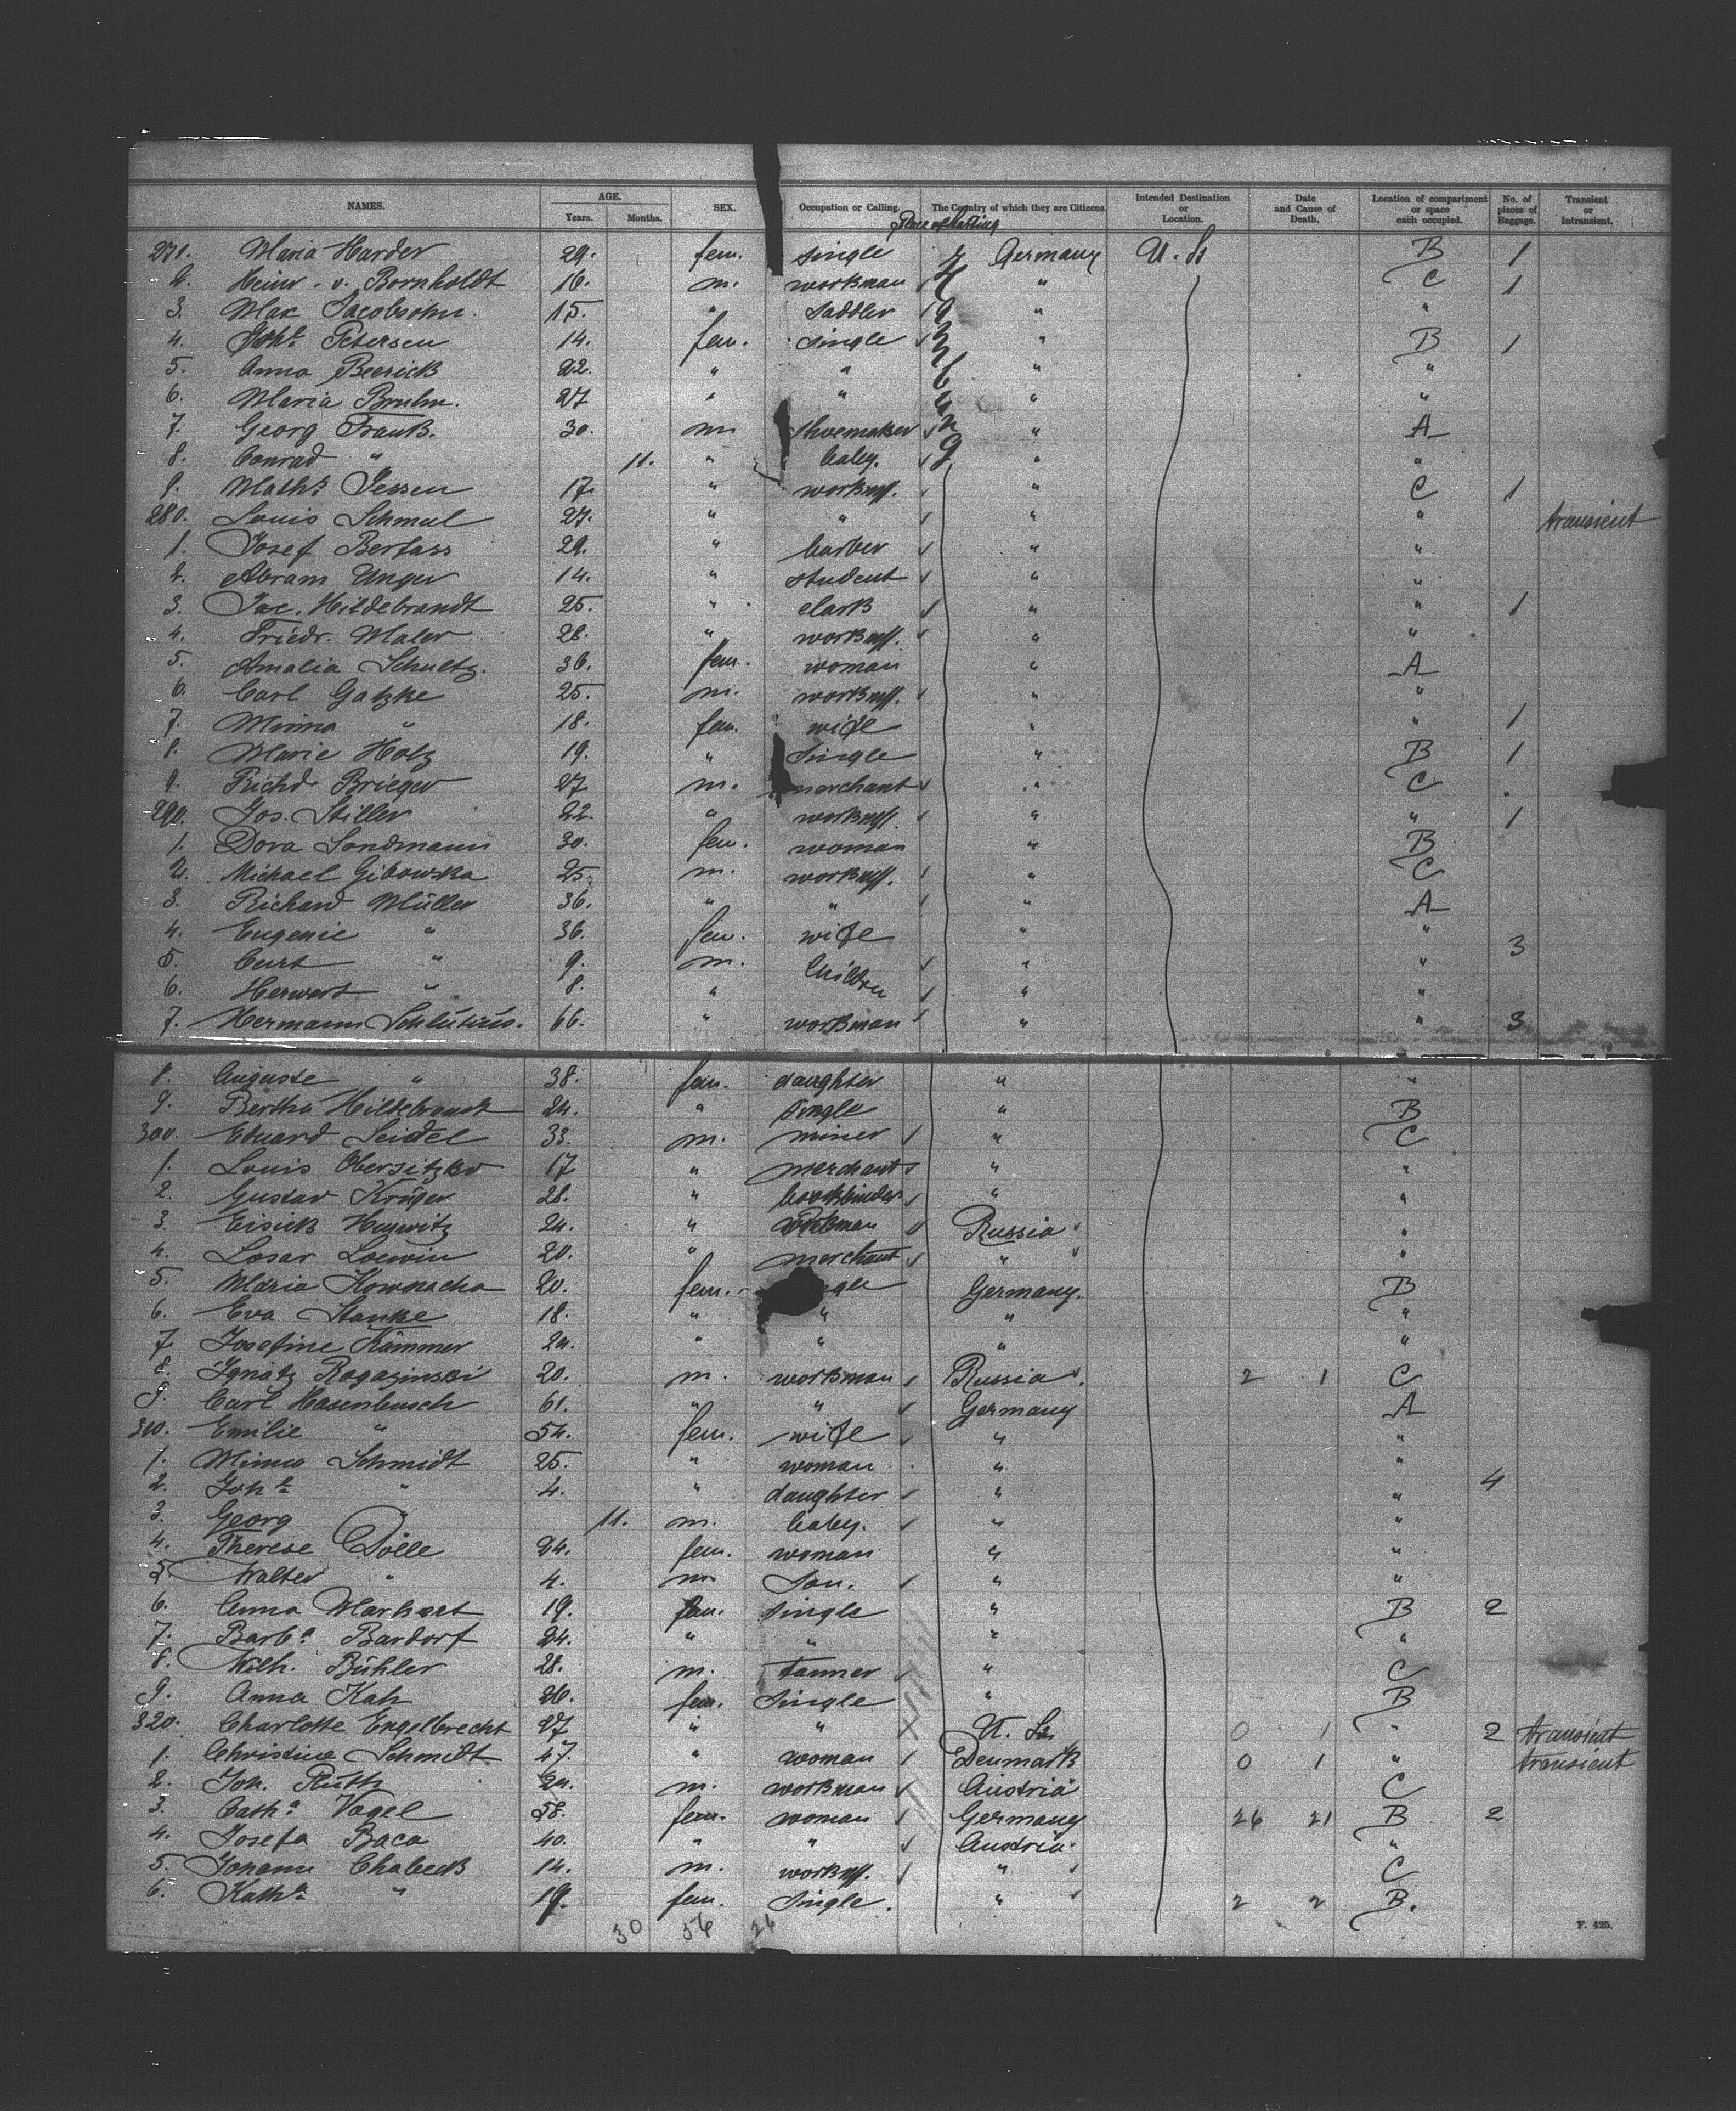 NAMES. AGE. SEX. Occupation or Calling. The Country of which they are Citizens. Intended Destination or Location. Date and Cause of Death. Location of compartment or space each occupied. No. of pieces of Baggage. Transient or Intransient.
Years. Months.
271. Maria Harder 29. fem. single Germany U. S. B 1
2. Heinr. v. Bornholdt 16. m. workman " C 1
3. Max Jacobsohn. 15. " saddler " "
4. Joh.ᵉ Petersen 14. fem. single " B 1
5. Anna 22. " " " "
6. Maria Bruhn. 27 " " " "
7. Georg Frank. 30. m. shoemaker " A
8. Conrad " 11. " baby. " "
9. Math.ˢ Jessen 17. " " C 1
280. Louis Schmul 27. " " " " transient
1. Josef Berfass 29. " barber " "
2. Abram Unger 14. " student " "
3. Jac. Hildebrandt 25. " clark " " 1
4. Friedr. Maler 28. " " "
5. Amalia Schultz. 36. fem. woman " A
6. Carl Gatzke 25. m. " "
7. Minna " 18. fem. wife " " 1
8. Marie Holz 19. " single " B 1
9. Richd. Brieger 27 m. merchant " C
290. Jos. Stiller 22. " " " 1
1. Dora Sandmann 30. fem. woman " B
2. Michael Gibowska 25. m. " C
3. Richard Müller 36. " " " A
4. Eugenie " 36. fem. wife " " 3
5. Curt " 9. m. children " "
6. Herwart " 8. " " "
7. Hermann Schlutius. 66. " workman " " 3
8. Auguste " 38. fem. daughter " "
9. Bertha Hildebrandt 24. " single " B
300. Eduard Seidel 33. m. miner " C
1. Louis Obersitzko 17. " merchant " "
2. Gustav Krüger 28. " bookbinder " "
3. Eisick Hurwitz 24. " workman Russia "
4. Losar Loewin 20. " merchant " "
5. Maria Kownacka 20. fem. Germany. B
6. Eva Stanke 18. " " " "
7. Josefine Kämmer 24. " " " "
8. Ignatz Rogazinski 20. m. workman Russia. 2 1 C
9. Carl Hasenbusch 61. " " Germany A
310. Emilie " 54. fem. wife " "
1. Minna Schmidt 25. " woman " "
2. Joh.ᵉ " 4. " daughter " " 4
3. Georg " 11. m. baby. " "
4. Therese Dölle 24. fem. woman " "
5 Walter " 4. m. Son. " "
6. Anna Markert 19. fem. single " B 2
7. Barb.ᵃ Bardorf 24. " " " "
8. Wilh. Bühler 28. m. tanner " C
9. Anna Kah 26. fem. single " B
320. Charlotte Engelbrecht 27 " " U. S. 0 1 " 2 transient
1. Christine Schmidt 47. " woman Denmark 0 1 " transient
2. Joh. Ruth 24. m. workman Austria C
3. Cath.ᵃ Vogel 58. fem. woman Germany 26 21 B 2
4. Josefa Baca 40. " " Austria. "
5. Johann Chabeck 14. m. " C
6. Kath.ᵃ " 19. fem. single. " 2 2 B.
30 56 26
F. 425.